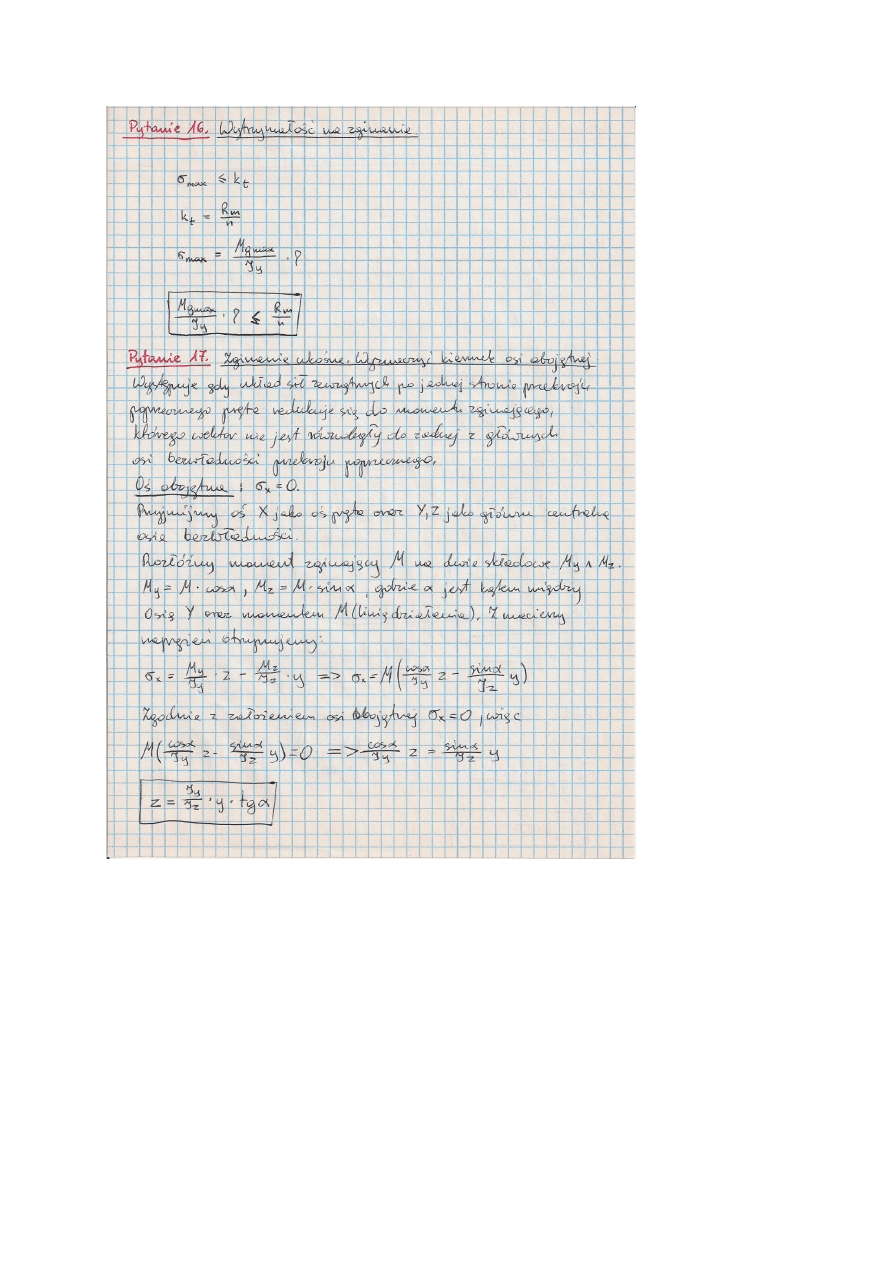 Pytanie 16. Wytrzymałość na zginanie
σmax ≤ kt
kt = Rm/n
σmax = Mgmax/Jy · ρ
Mgmax/Jy · ρ ≤ Rm/n
Pytanie 17. Zginanie ukośne. Wyznaczyć kierunek osi obojętnej
Występuje gdy układ sił zewnętrznych po jednej stronie przekroju
poprzecznego pręta redukuje się do momentu zginającego,
którego wektor nie jest równoległy do żadnej z głównych
osi bezwładności przekroju poprzecznego.
Oś obojętna : σx = 0.
Przyjmijmy oś X jako oś pręta oraz Y, Z jako główne centralne
osie bezwładności.
Rozłóżmy moment zginający M na dwie składowe My ∧ Mz.
My = M · cosα, Mz = M · sinα, gdzie α jest kątem między
Osią Y oraz momentem M (linią działania). Z macierzy
naprężeń otrzymujemy:
σx = My/Jy · z - Mz/Jz · y => σx = M(cosα/Jy z - sinα/Jz y)
Zgodnie z założeniem osi obojętnej σx = 0, więc
M(cosα/Jy z - sinα/Jz y) = 0 => cosα/Jy z = sinα/Jz y
z = Jy/Jz · y · tgα